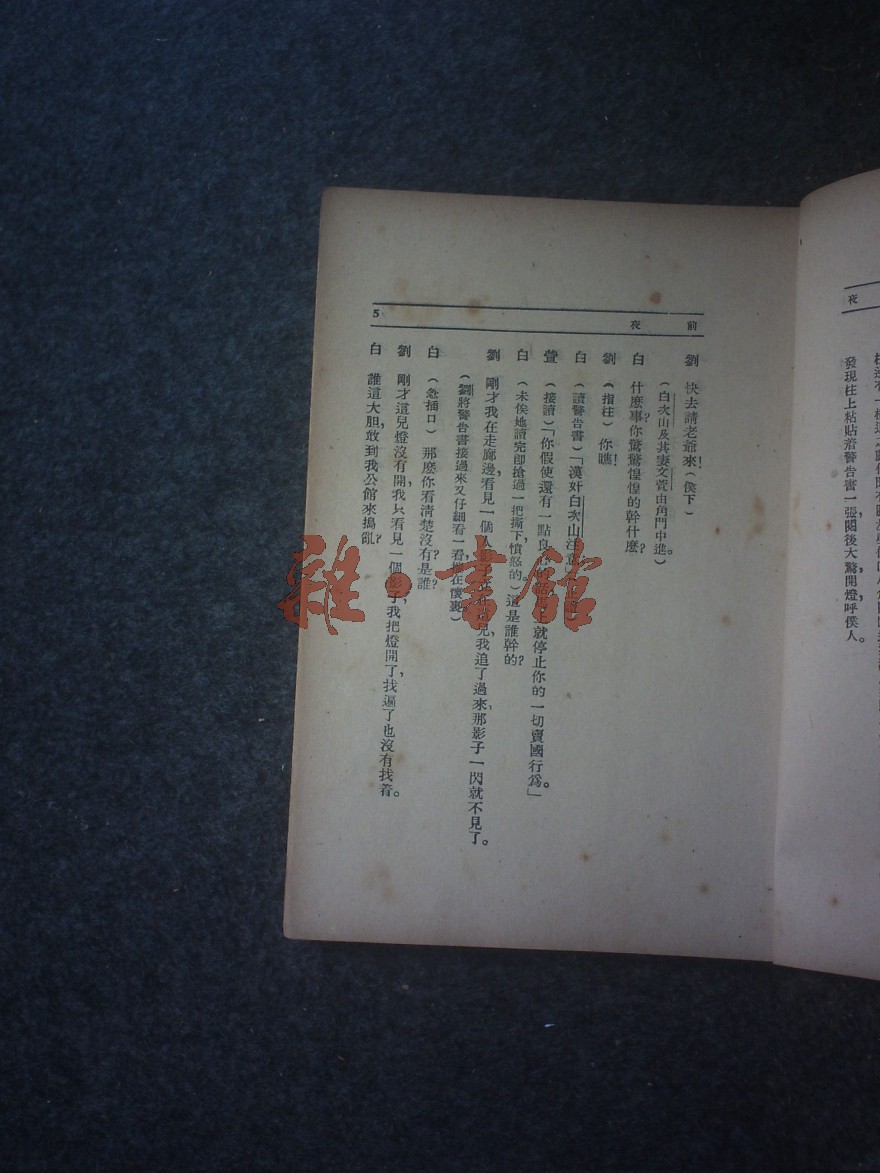 前夜
5
劉　快去請老爺來！（僕下）
（白次山及其妻文萱由角門中進。）
白　什麽事？你驚驚惶惶的幹什麽？
劉　（指柱）你瞧！
白　（讀警告書）「漢奸白次山注意
萱　（接讀）「你假使還有一點良心的話　上就停止你的一切賣國行爲。」
白　（未俟地讀完卽搶過一把撕下，憤怒的。）這是誰幹的？
劉　剛才我在走廊邊看見一個人影　　　　兒，我追了過來，那影子一閃就不見了。
（劉將警告書接過來又仔細看一看，　在懷裏）
白　（急插口）那麽你看清楚沒有？是誰？
劉　剛才這兒燈沒有開，我只看見一個影子，我把燈開了，找遍了也沒有找着。
白　誰這大胆，敢到我公館來搗亂？
夜
發現柱上粘貼着警告書一張，閱後大驚，開燈呼僕人。
雜·書館